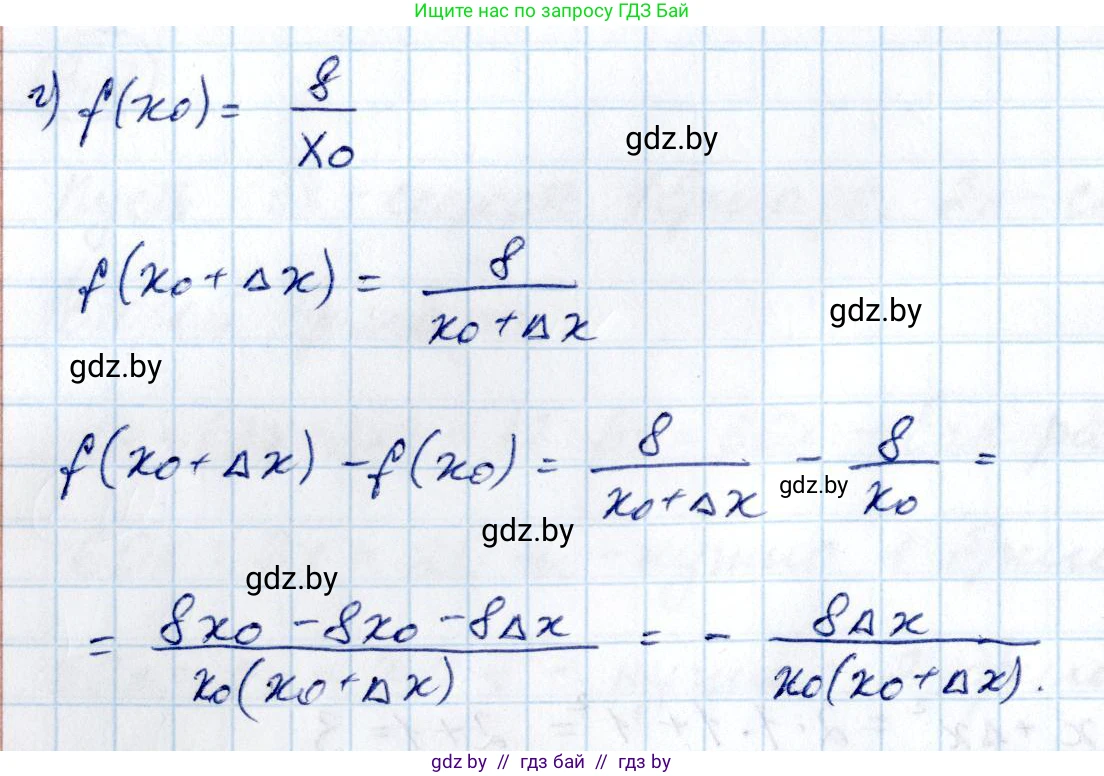 Ищите нас по запросу ГДЗ Бай
г) f(x₀) = 8/x₀
gdz.by
f(x₀ + Δx) = 8/(x₀ + Δx)
gdz.by
gdz.by
f(x₀ + Δx) - f(x₀) = 8/(x₀ + Δx) - 8/x₀ =
gdz.by
gdz.by
gdz.by
= (8x₀ - 8x₀ - 8Δx)/(x₀(x₀ + Δx)) = - 8Δx/(x₀(x₀ + Δx)).
gdz.by // гдз бай // gdz.by